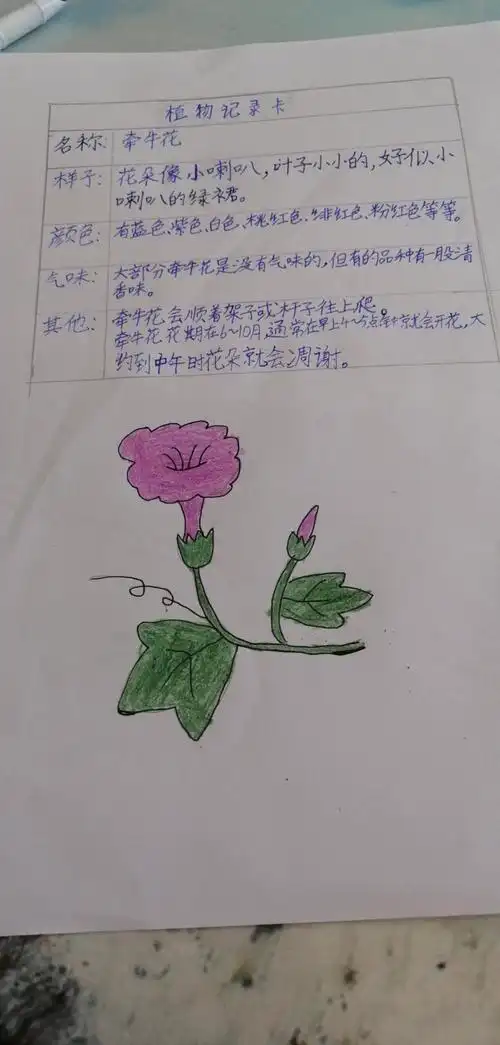 植物记录卡
名称: 牵牛花
样子: 花朵像小喇叭,叶子小小的,好似小
喇叭的绿裙。
颜色: 有蓝色、紫色、白色、桃红色、绯红色、粉红色等等。
气味: 大部分牵牛花是没有气味的,但有的品种有一股清
香味。
其他: 牵牛花会顺着架子或杆子往上爬。
牵牛花花期在6~10月,通常在早上4~5点钟就会开花,大
约到中午时花朵就会凋谢。